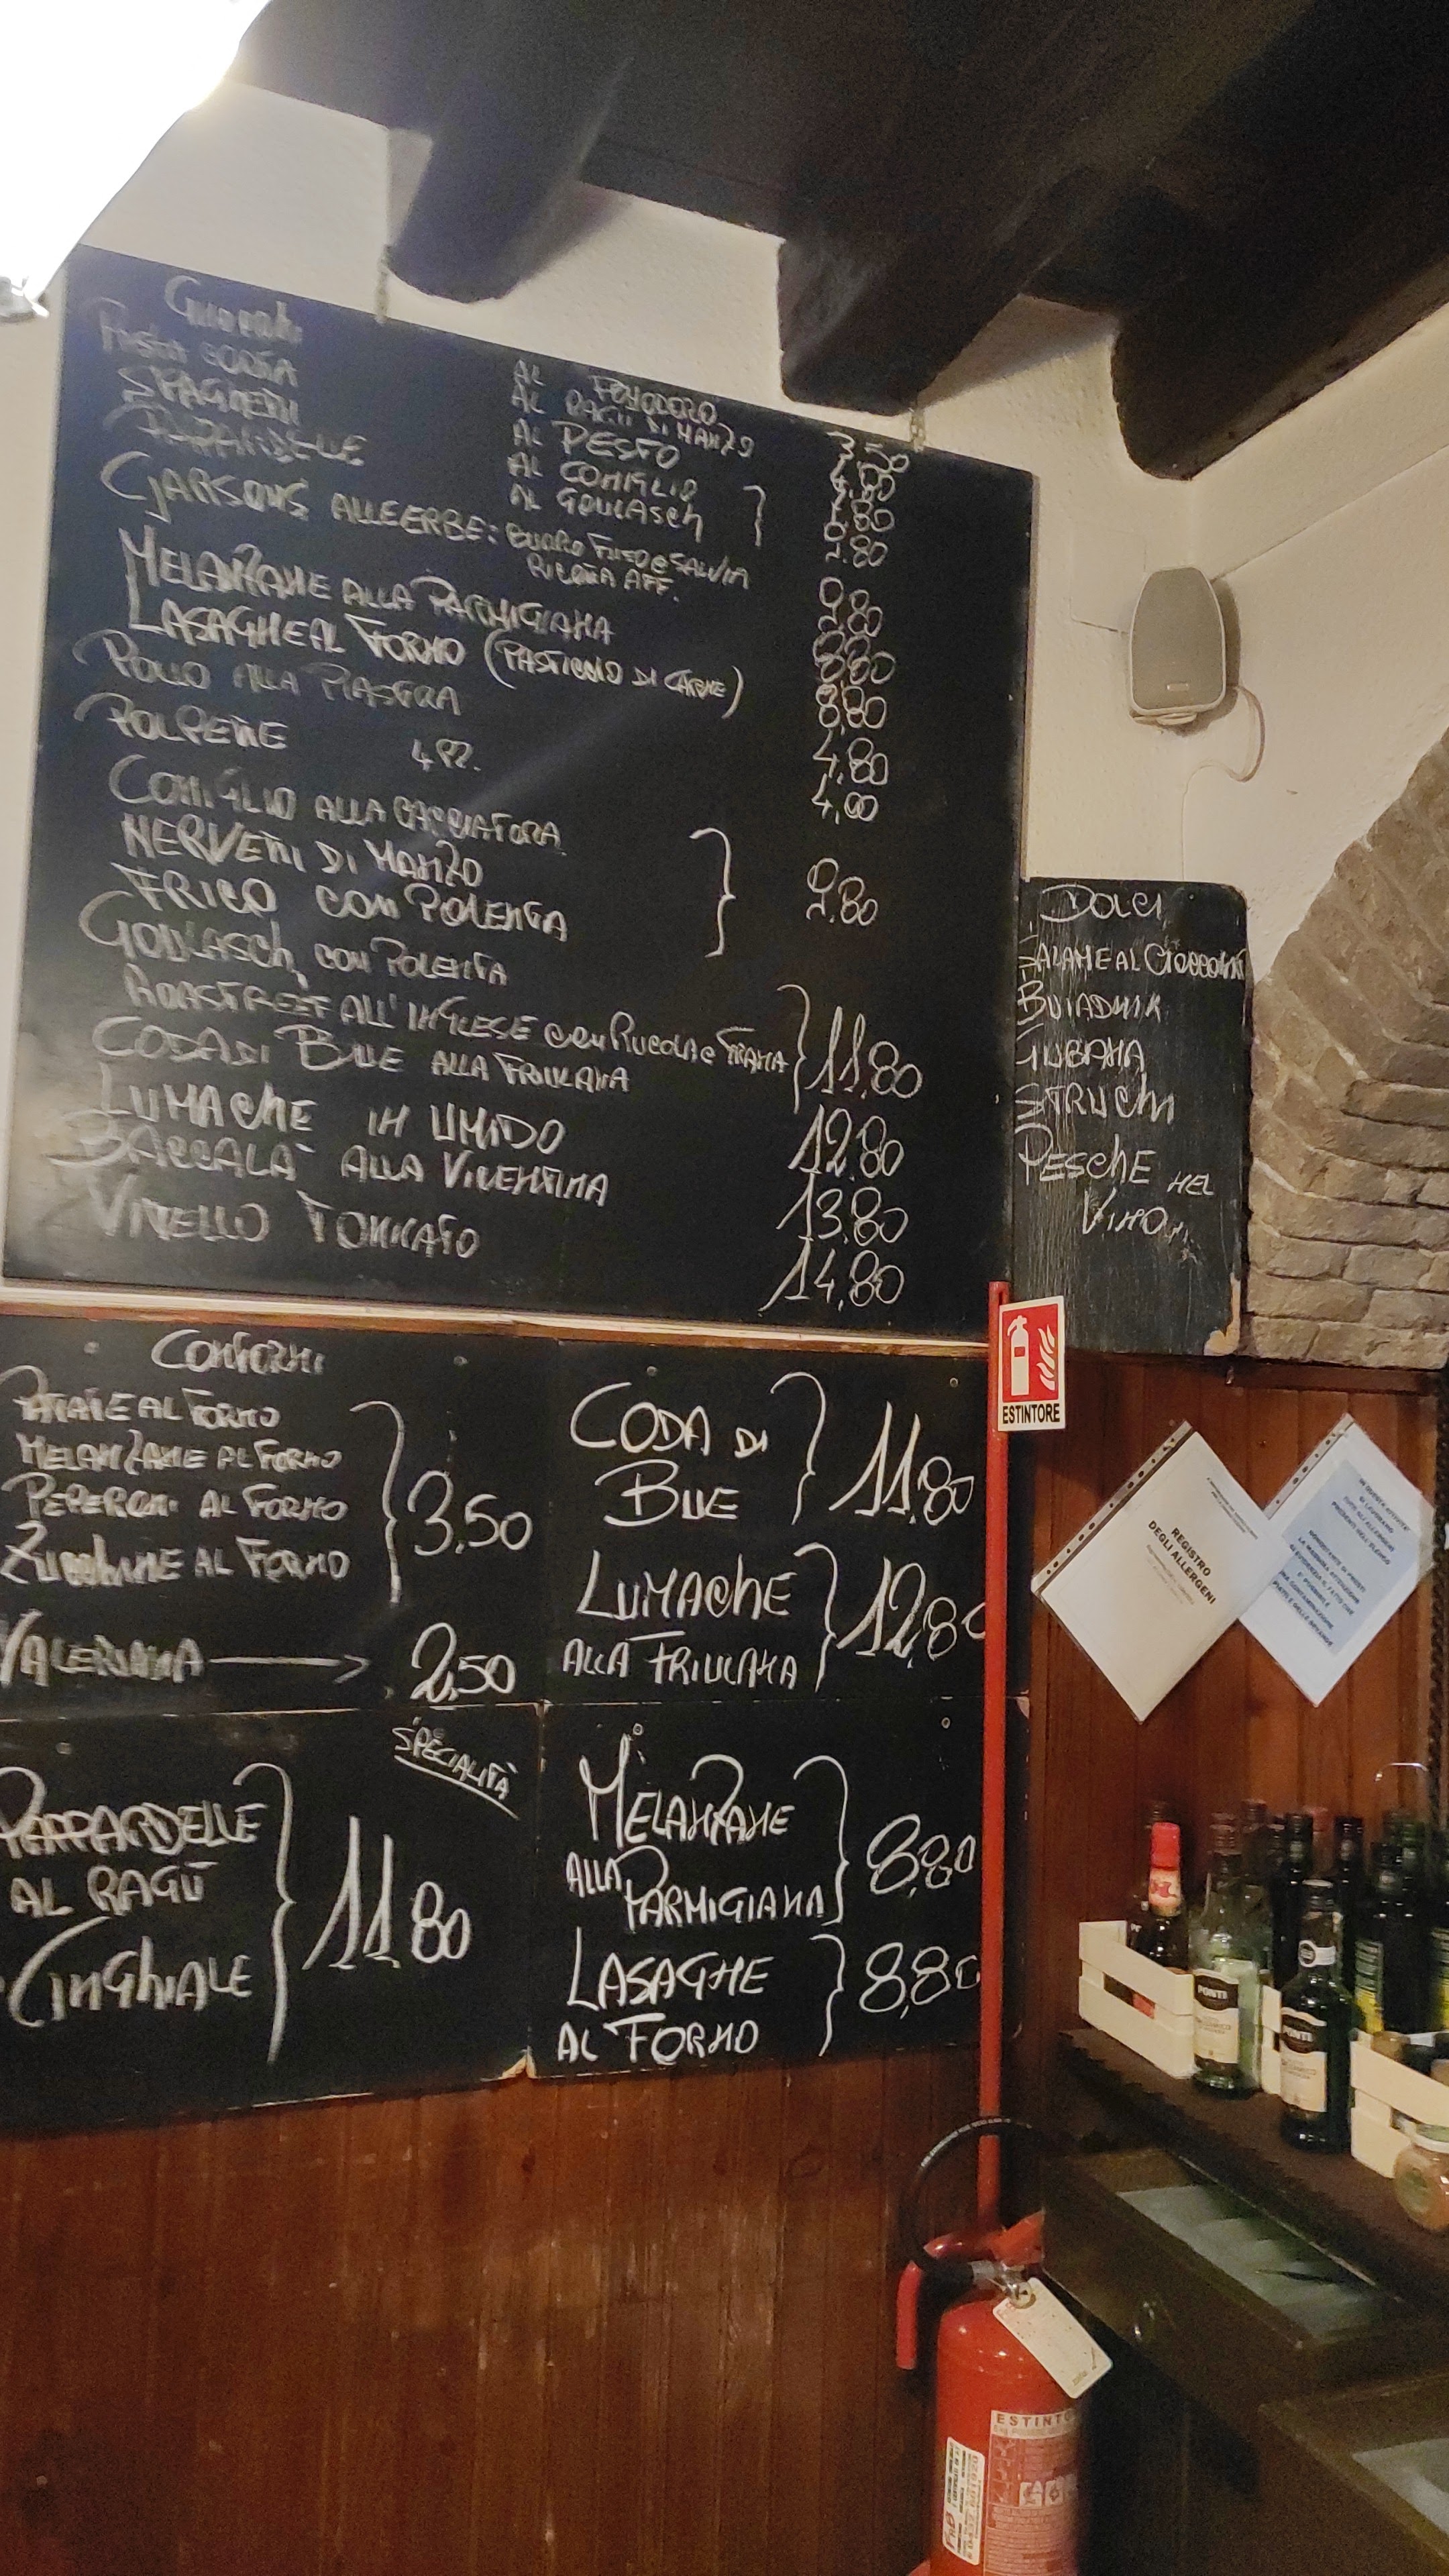 Gnocchi
PASTA CORTA AL POMODORO 3,50
SPAGHETTI AL RAGÙ DI MANZO 4,80
PAPPARDELLE AL PESTO 7,80
AL CONIGLIO
AL GOULASCH } 9,80
CJARSONS ALLE ERBE: BURRO FUSO e SALVIA
RICOTTA AFF. 9,80
MELANZANE ALLA PARMIGIANA 8,80
LASAGNE AL FORNO (PASTICCIO DI CARNE) 8,80
POLLO ALLA PIASTRA 4,80
POLPETTE 4 PZ. 4,00
CONIGLIO ALLA CACCIATORA
NERVETTI DI MANZO
FRICO CON POLENTA } 9,80
GOULASCH CON POLENTA
ROASTBEEF ALL'INGLESE CON RUCOLA e GRANA
CODA DI BUE ALLA FRIULANA } 11,80
LUMACHE IN UMIDO 12,80
BACCALÀ ALLA VICENTINA 13,80
VITELLO TONNATO 14,80
DOLCI
SALAME AL CIOCCOLATO
BUIADNIK
GUBANA
STRUCHI
PESCHE NEL
VINO
CONTORNI
PATATE AL FORNO
MELANZANE AL FORNO
PEPERONI AL FORNO
ZUCCHINE AL FORNO
} 3,50
VALERIANA → 2,50
CODA DI
BUE } 11,80
LUMACHE
ALLA FRIULANA } 12,80
SPECIALITÀ
PAPPARDELLE
AL RAGÙ
CINGHIALE } 11,80
MELANZANE
ALLA PARMIGIANA } 8,80
LASAGNE
AL FORNO } 8,80
ESTINTORE
REGISTRO
DEGLI ALLERGENI
PONTI
PONTI
ESTINTO